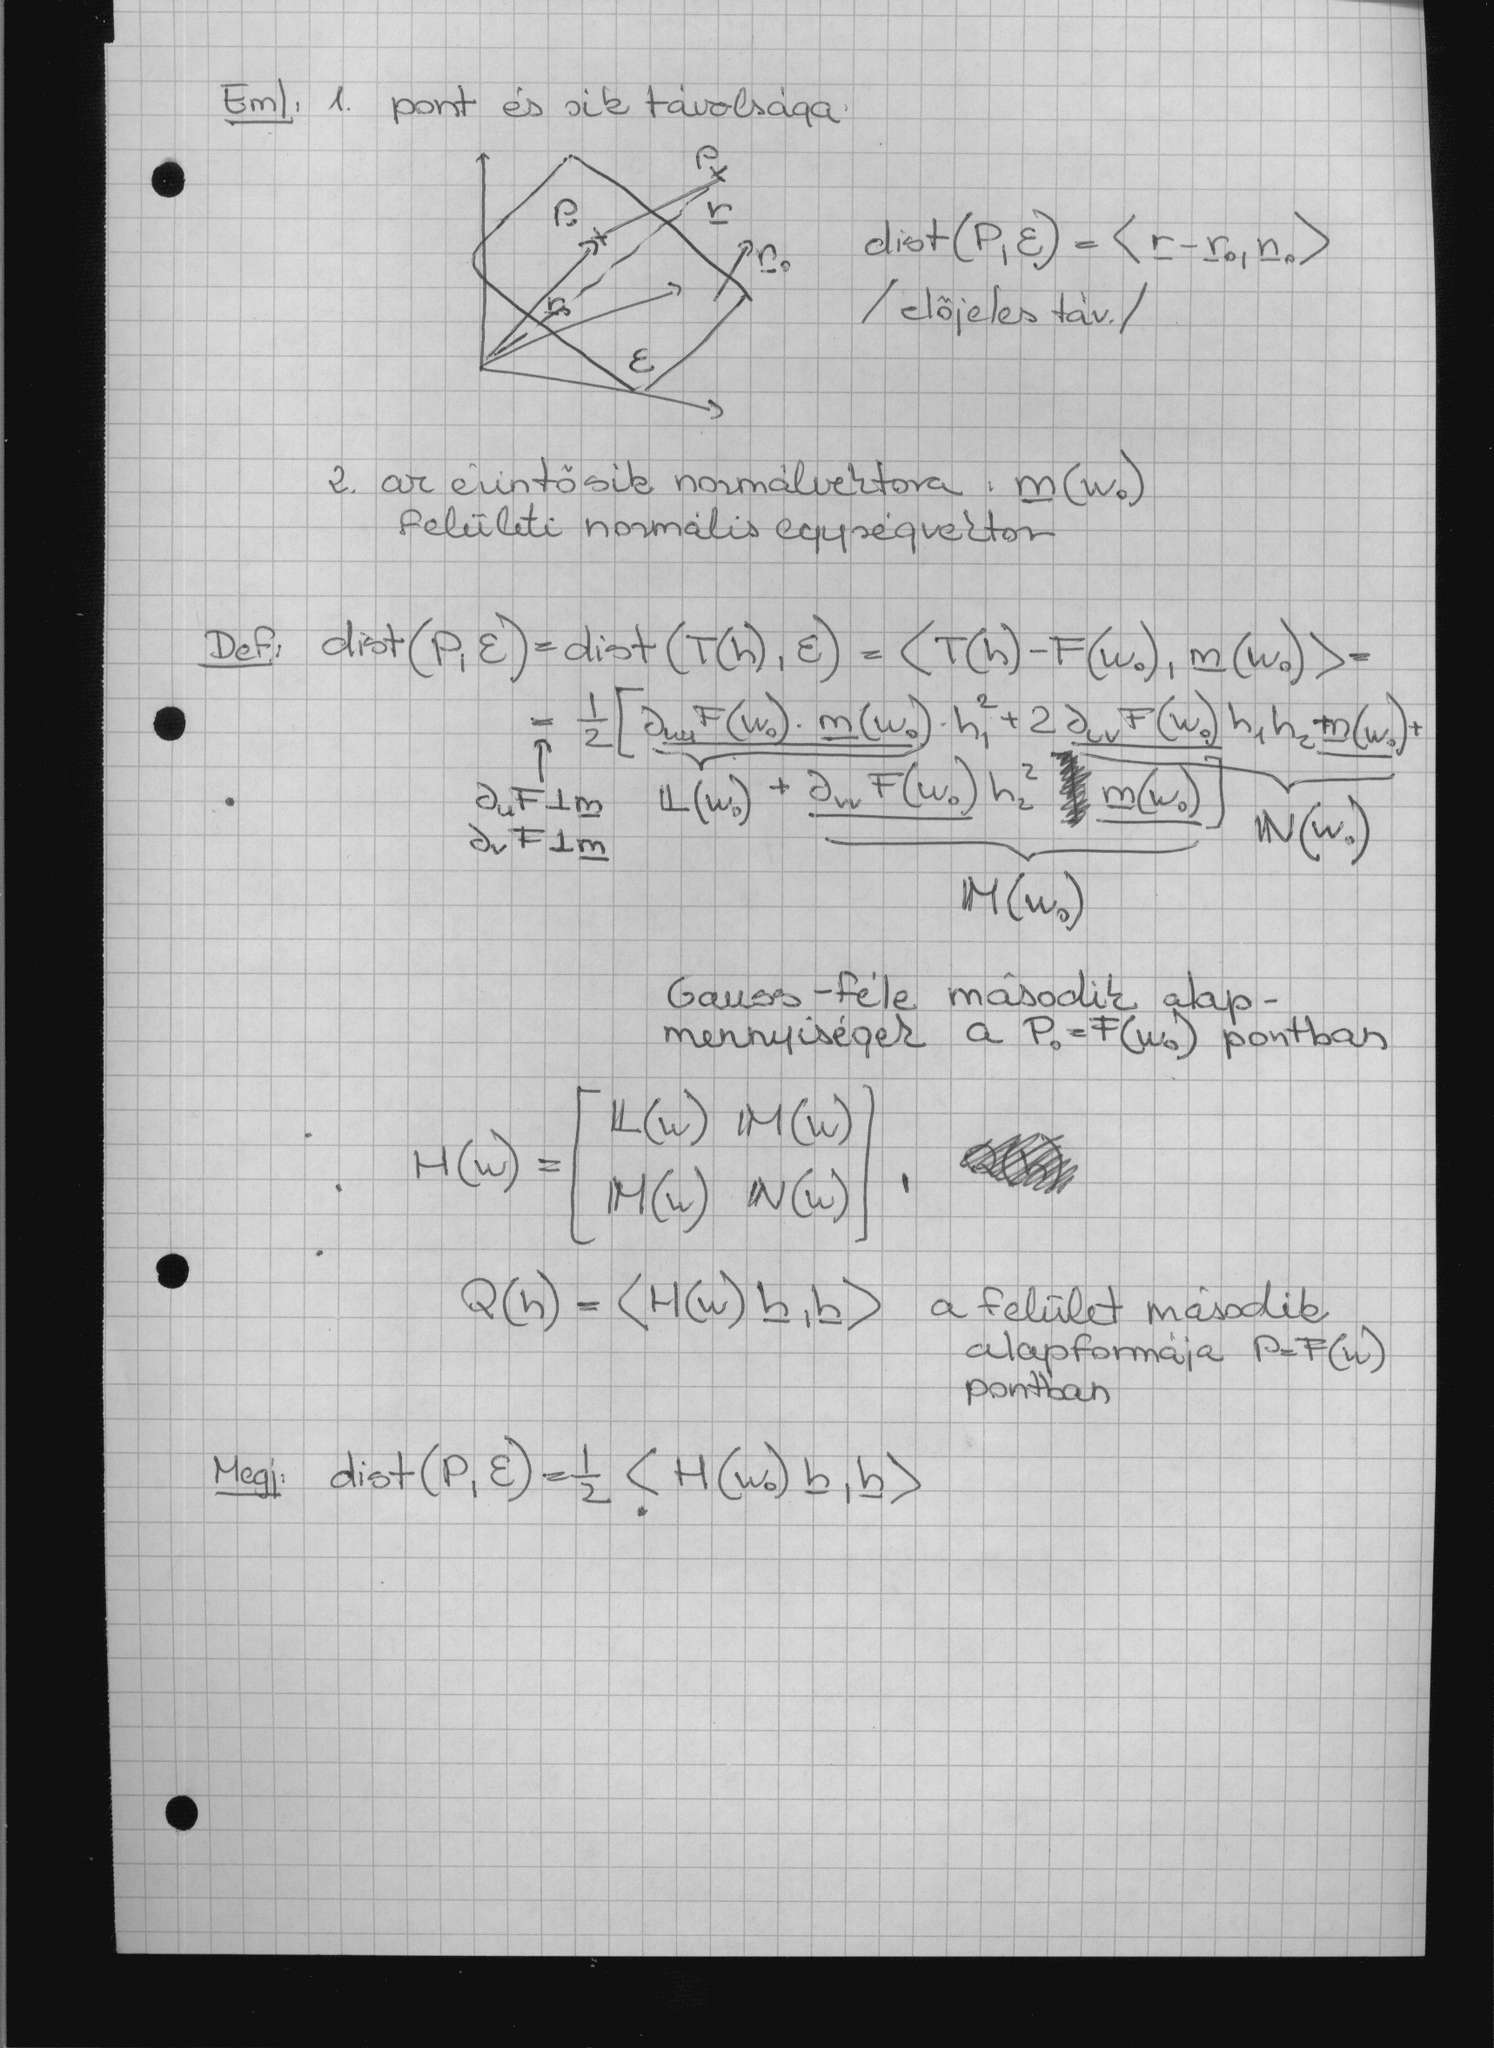 Eml: 1. pont és sík távolsága.
P
P₀
r
n₀
r₀
ε
dist(P, ε) = ⟨r - r₀, n₀⟩
/előjeles táv./
2. az érintősík normálvektora: m(w₀)
felületi normális egységvektor
Def: dist(P, ε) = dist(T(h), ε) = ⟨T(h) - F(w₀), m(w₀)⟩ =
= 1/2 [∂ᵤᵤF(w₀) · m(w₀) · h₁² + 2 ∂ᵤᵥF(w₀) h₁h₂ m(w₀) +
∂ᵤF ⊥ m 𝕃(w₀) + ∂ᵥᵥF(w₀) h₂² m(w₀)] ℕ(w₀)
∂ᵥF ⊥ m
𝕄(w₀)
Gauss-féle második alap-
mennyiségek a P₀ = F(w₀) pontban
H(w) = [𝕃(w) 𝕄(w)
𝕄(w) ℕ(w)],
Q(h) = ⟨H(w) h, h⟩ a felület második
alapformája P = F(w)
pontban
Megj: dist(P, ε) = 1/2 ⟨H(w₀) h, h⟩